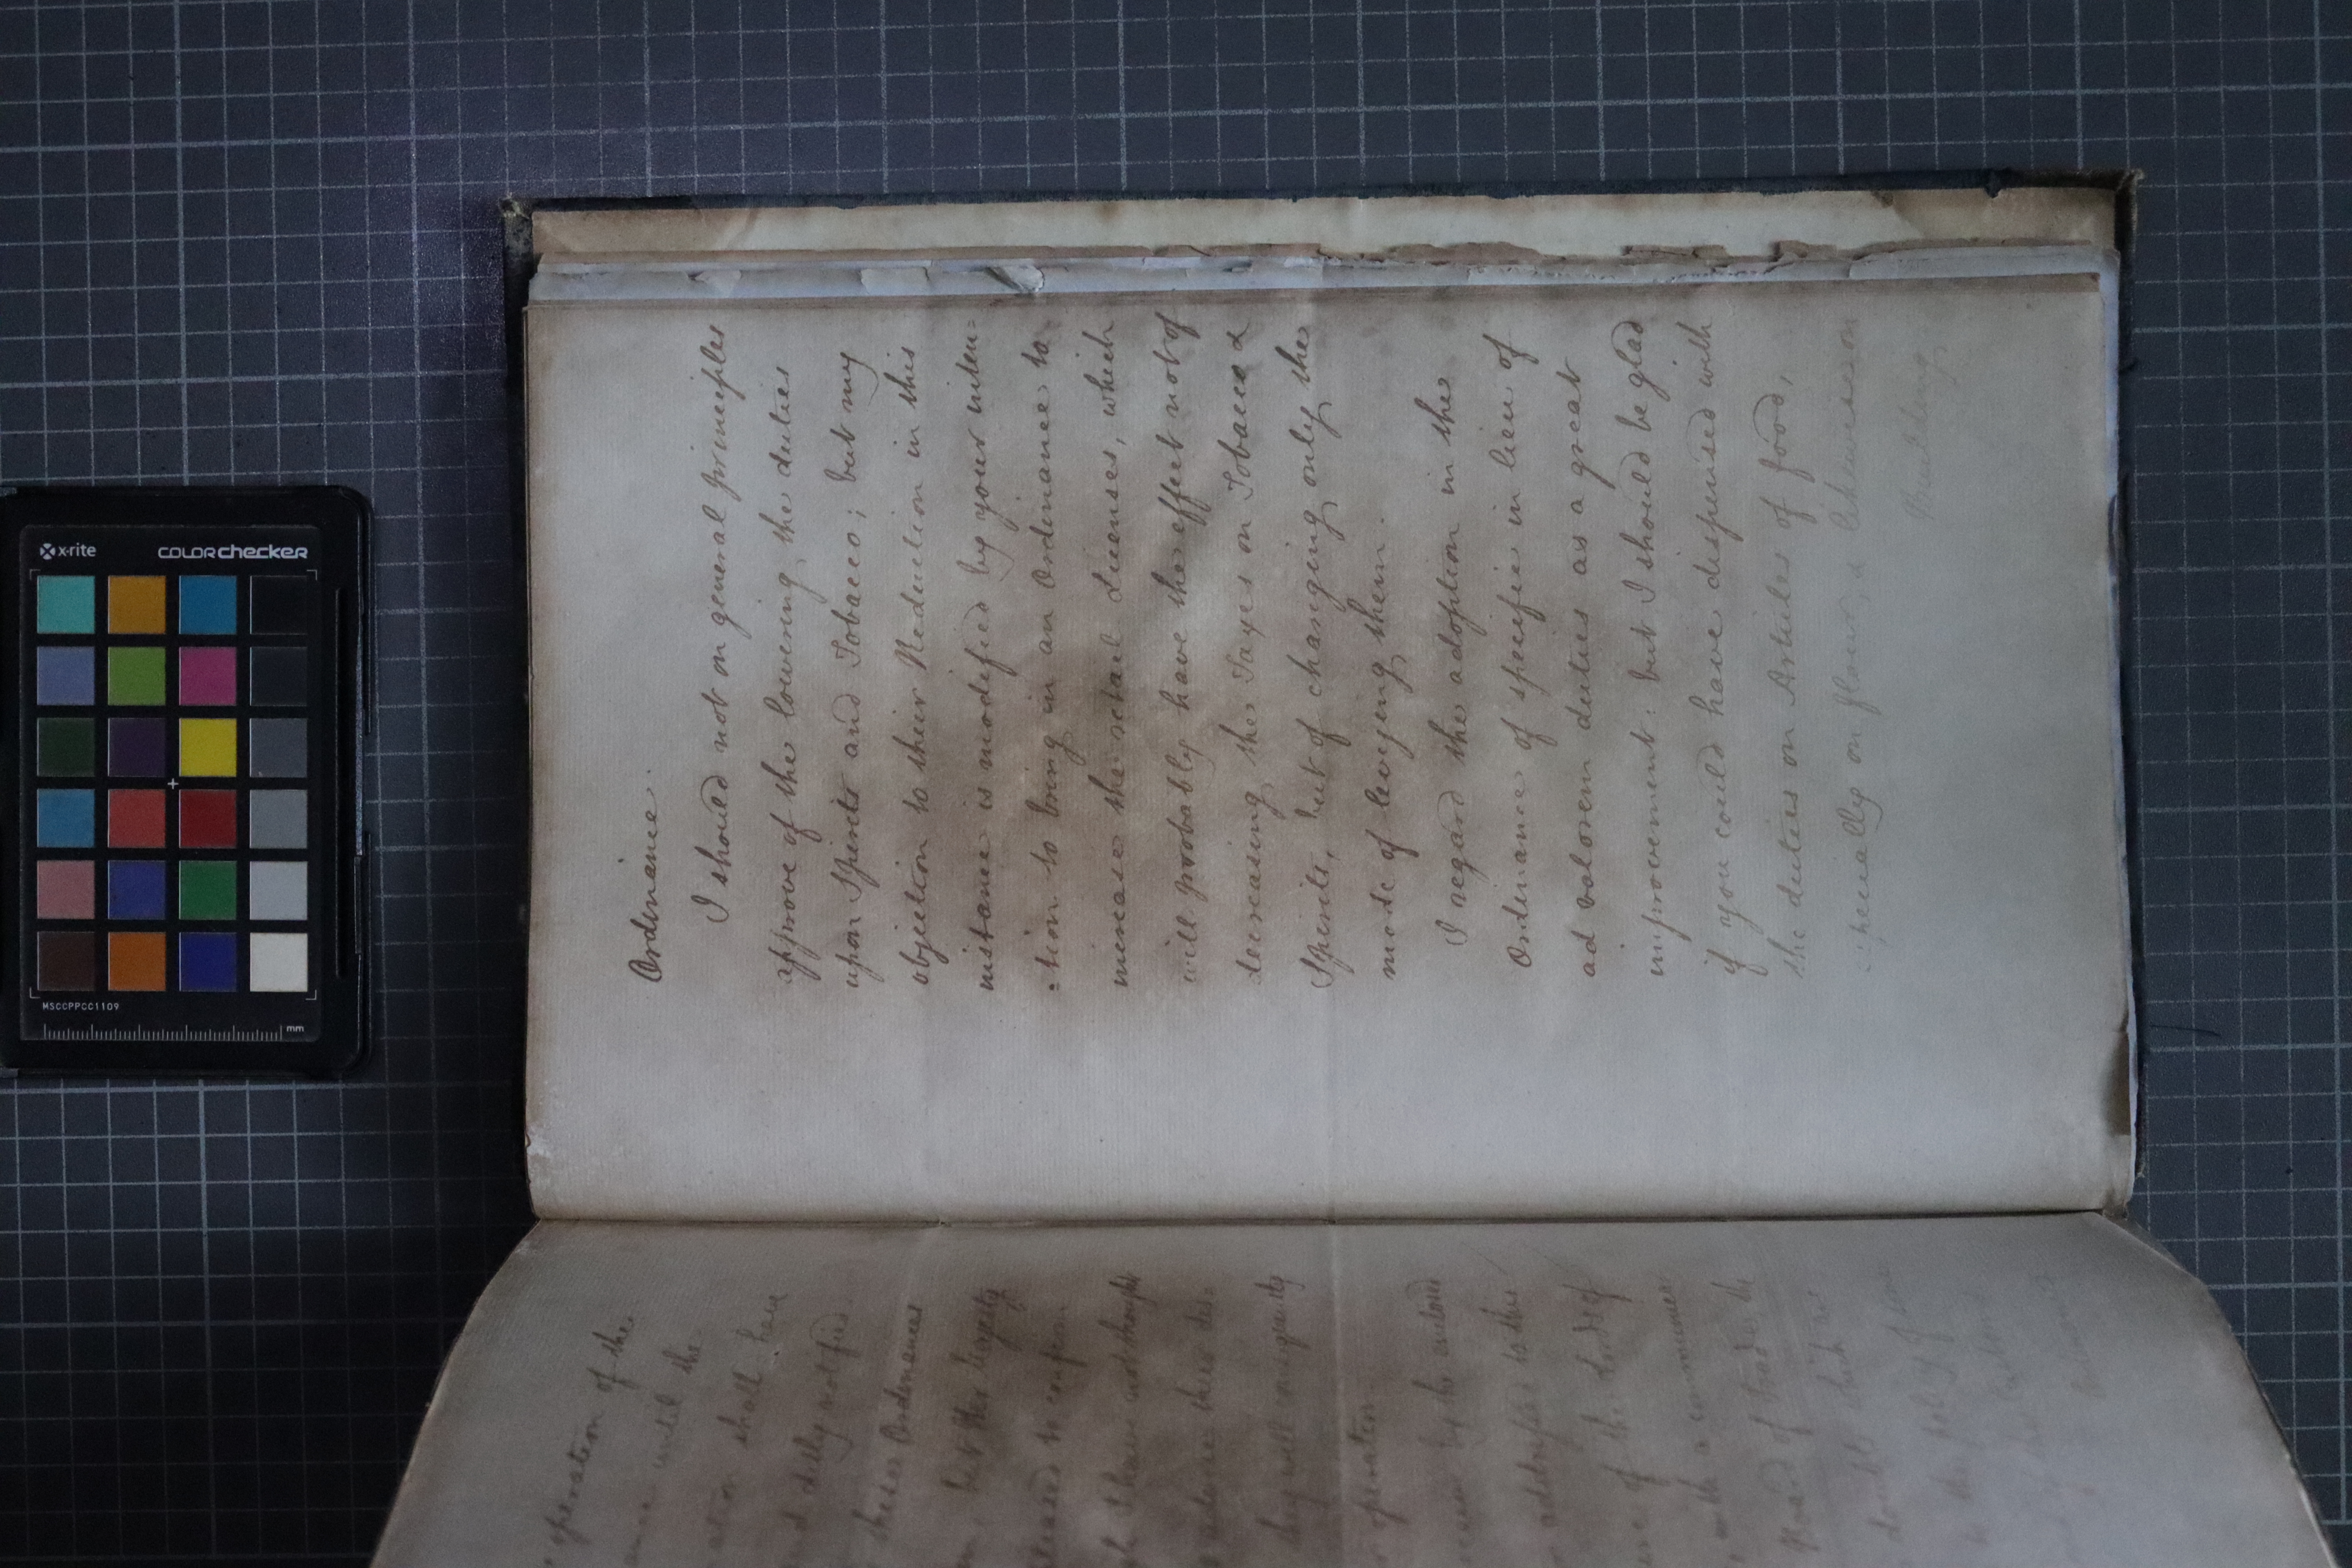 Ordinance.
I should not on general principles
approve of the lowering the duties
upon Spirits and Tobacco; but my
objection to their Reduction in this
instance is modified by your inten=
:tion to bring in an Ordinance to
increase the retail Licenses, which
will probably have the effect not of
decreasing the Taxes on Tobacco &
Spirits, but of changing only the
mode of levying them.
I regard the adoption in the
Ordinance of specific in lieu of
ad valorem duties as a great
improvement: but I should be glad
if you could have dispensed with
the duties on Articles of food,
especially on flour, &
Building
operation of the
until the
shall have
duly notified.
these Ordinances
but Her Majesty
pleased to confirm
I have not thought
they will consequently
operation.
of the Lords of
with a communi
Board of Trade, the
x-rite
colorchecker
MSCCPPCC1109
mm